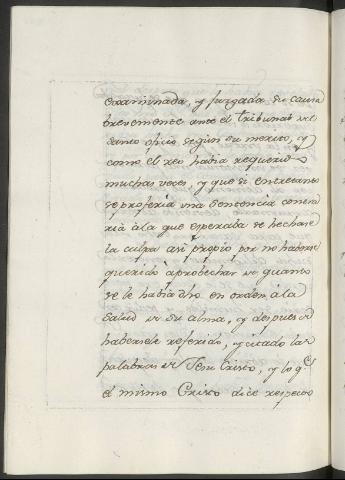 examinada, y juzgada su causa
brevemente ante el tribunal del
santo oficio segun su merito, y
como el reo habia requerido
muchas veces, y que si entretanto
se profería una sentencia contra
ria à la que esperaba se hechase
la culpa asi propio por no haberse
querido àprobechar de quanto
se le habia dho en orden à la
salud de su alma, y despues de
haberele referido, y citado las
palabras de Jesu Cristo, y lo q.e
el mismo Cristo dice respecto